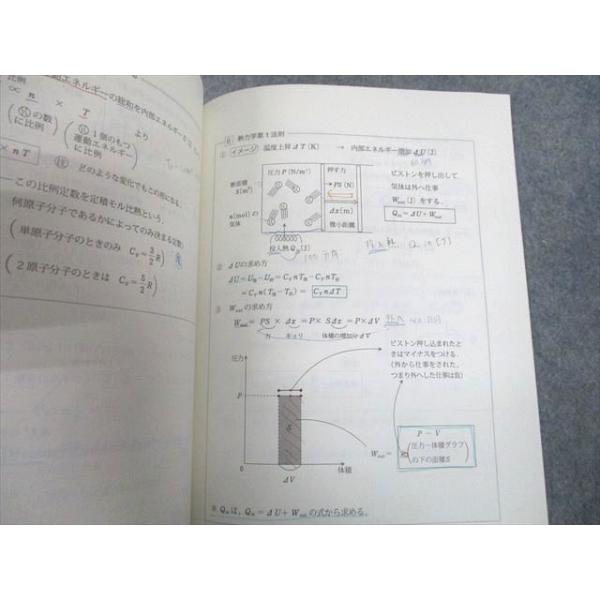 比例
∝ n × T より
の数に比例
1個のもつ運動エネルギーに比例
× nT
どのような変化でもこの形になる
この比例定数を定積モル比熱という。
何原子分子であるかによってのみ決まる定数
単原子分子のときのみ Cv=3/2R
2原子分子のときは Cv=5/2R
熱力学第1法則
① イメージ 温度上昇ΔT(K) → 内部エネルギー増加ΔU(J)
断面積
S(m²)
圧力P(N/m²)
押す力
PS(N)
n(mol)の
気体
Δx(m)
微小距離
投入熱Qin(J)
ピストンを押し出して,
気体は外へ仕事
Wout(J)をする。
Qin=ΔU+Wout
② ΔUの求め方
ΔU=U後-U前=CvnT後-CvnT前
=Cvn(T後-T前)=CvnΔT
③ Woutの求め方
Wout=PS×Δx=P×SΔx=P×ΔV
力 キョリ 体積の増加分ΔV
ピストン押し込まれたと
きはマイナスをつける。
(外から仕事をされた,
つまり外へした仕事は負)
圧力
P
S
0
ΔV
体積
Wout=
P-V
圧力-体積グラフ
の下の面積S
※ Qinは, Qin=ΔU+Woutの式から求める。